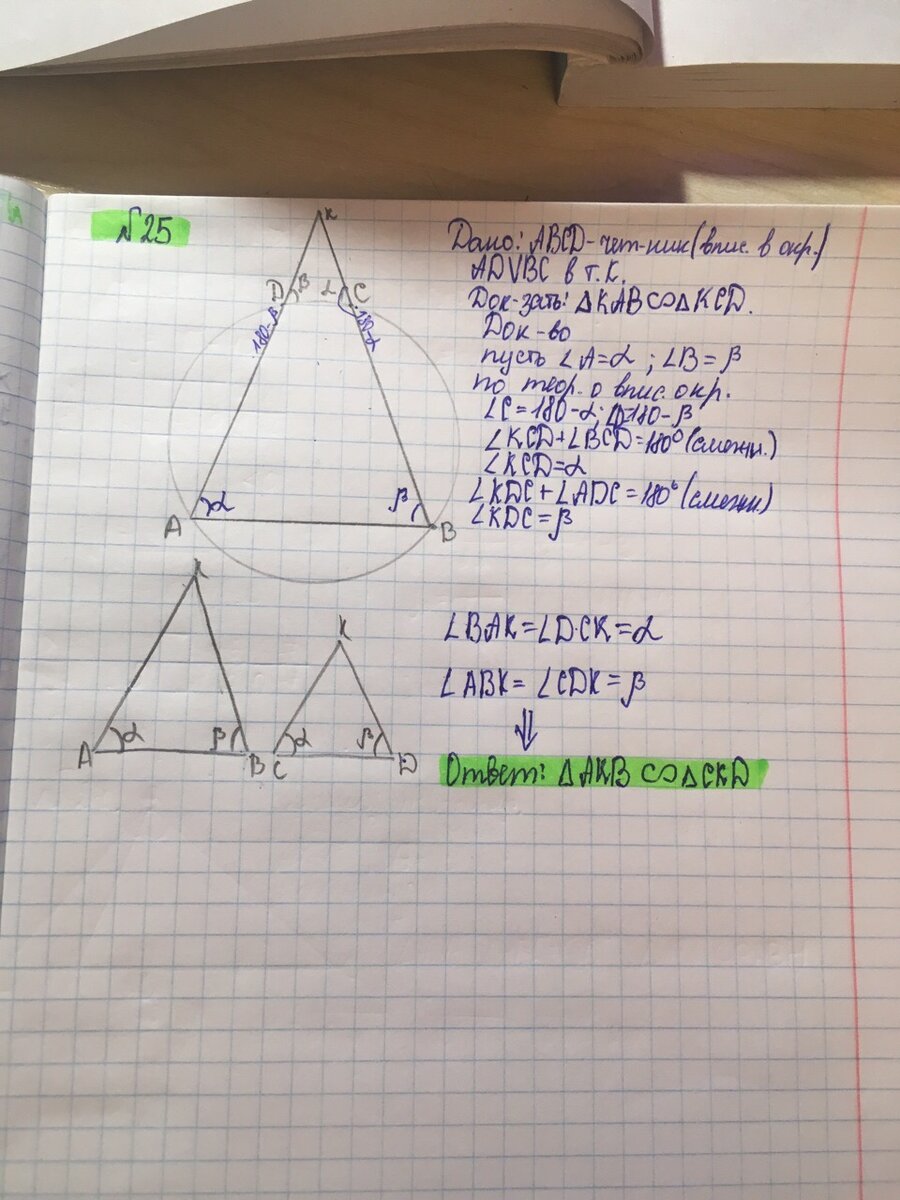 №25
K
D β α C
180-β 180-α
A α β B
Дано: ABCD-чет-ник (впис. в окр.)
AD∨BC в т. K.
Док-зать: △KAB∽△KCD.
Док-во
пусть ∠A=α ; ∠B=β
по теор. о впис. окр.
∠C=180-α; ∠D=180-β
∠KCD+∠BCD=180°(смежн.)
∠KCD=α
∠KDC+∠ADC=180°(смежн.)
∠KDC=β
K
A α β B
K
C α β D
∠BAK=∠DCK=α
∠ABK=∠CDK=β
⇓
Ответ: △AKB∽△CKD